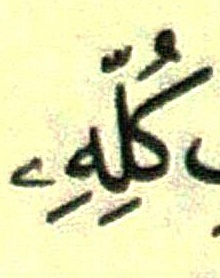 كُلِّهِۦ